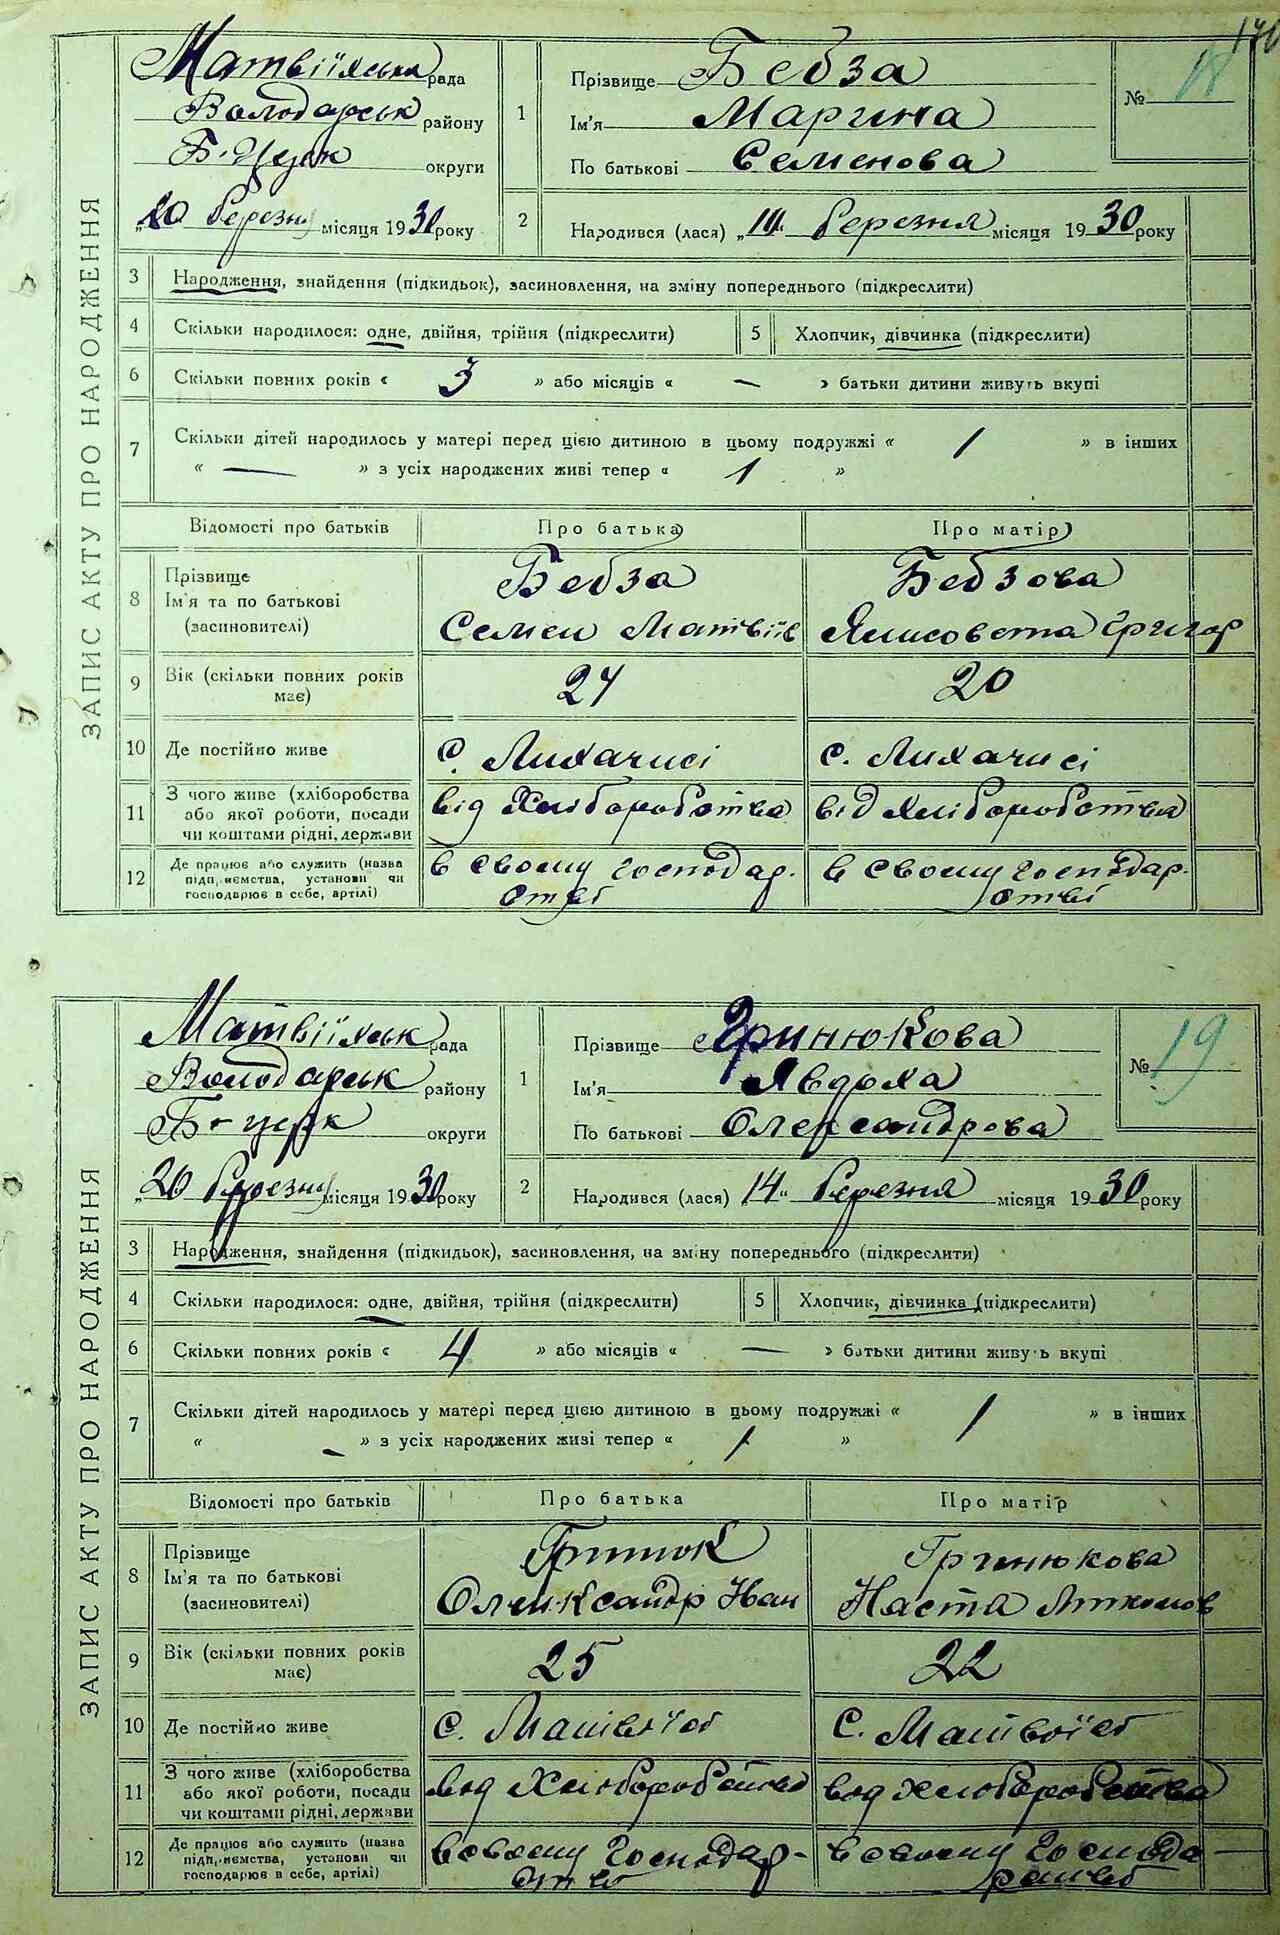 170
ЗАПИС АКТУ ПРО НАРОДЖЕННЯ
Матвіїхська рада
Володарськ району
Б. Церк округи
„20 березня місяця 1930 року
1
Прізвище Бебза
Ім'я Марина
По батькові Семенова
№ 18
2 Народився (лася) „ березня місяця 1930 року
3 Народження, знайдення (підкидьок), засиновлення, на зміну попереднього (підкреслити)
4 Скільки народилося: одне, двійня, трійня (підкреслити) 5 Хлопчик, дівчинка (підкреслити)
6 Скільки повних років « 3 » або місяців « — » батьки дитини живуть вкупі
7 Скільки дітей народилось у матері перед цією дитиною в цьому подружжі « 1 » в інших
« — » з усіх народжених живі тепер « 1 »
Відомості про батьків Про батька Про матір
8 Прізвище Бебза Бебзова
Ім'я та по батькові
(засиновителі) Семен Матвіїв Ялисовета Григор
9 Вік (скільки повних років має) 24 20
10 Де постійно живе с. Лихачисі с. Лихачисі
11 З чого живе (хліборобства або якої роботи, посади чи коштами рідні, держави від Хліборобства від Хліборобства
12 Де працює або служить (назва підприємства, установи чи господарює в себе, артілі) в своему господар. в своему господар.
стві стві
ЗАПИС АКТУ ПРО НАРОДЖЕННЯ
Матвіїхськ рада
Володарськ району
Б-церк округи
„20 березня місяця 1930 року
1
Прізвище Гринюкова
Ім'я Явдоха
По батькові Олександрова
№ 19
2 Народився (лася) „14“ березня місяця 1930 року
3 Народження, знайдення (підкидьок), засиновлення, на зміну попереднього (підкреслити)
4 Скільки народилося: одне, двійня, трійня (підкреслити) 5 Хлопчик, дівчинка (підкреслити)
6 Скільки повних років « 4 » або місяців « — » батьки дитини живуть вкупі
7 Скільки дітей народилось у матері перед цією дитиною в цьому подружжі « 1 » в інших
« — » з усіх народжених живі тепер « 1 »
Відомості про батьків Про батька Про матір
8 Прізвище Гринюк Гринюкова
Ім'я та по батькові
(засиновителі) Олександр Іван Наста
9 Вік (скільки повних років має) 25 22
10 Де постійно живе с. с.
11 З чого живе (хліборобства або якої роботи, посади чи коштами рідні, держави вод Хлюборобства вод хлюборобства
12 Де працює або служить (назва підприємства, установи чи господарює в себе, артілі) в своему Господар- в своему Господа-